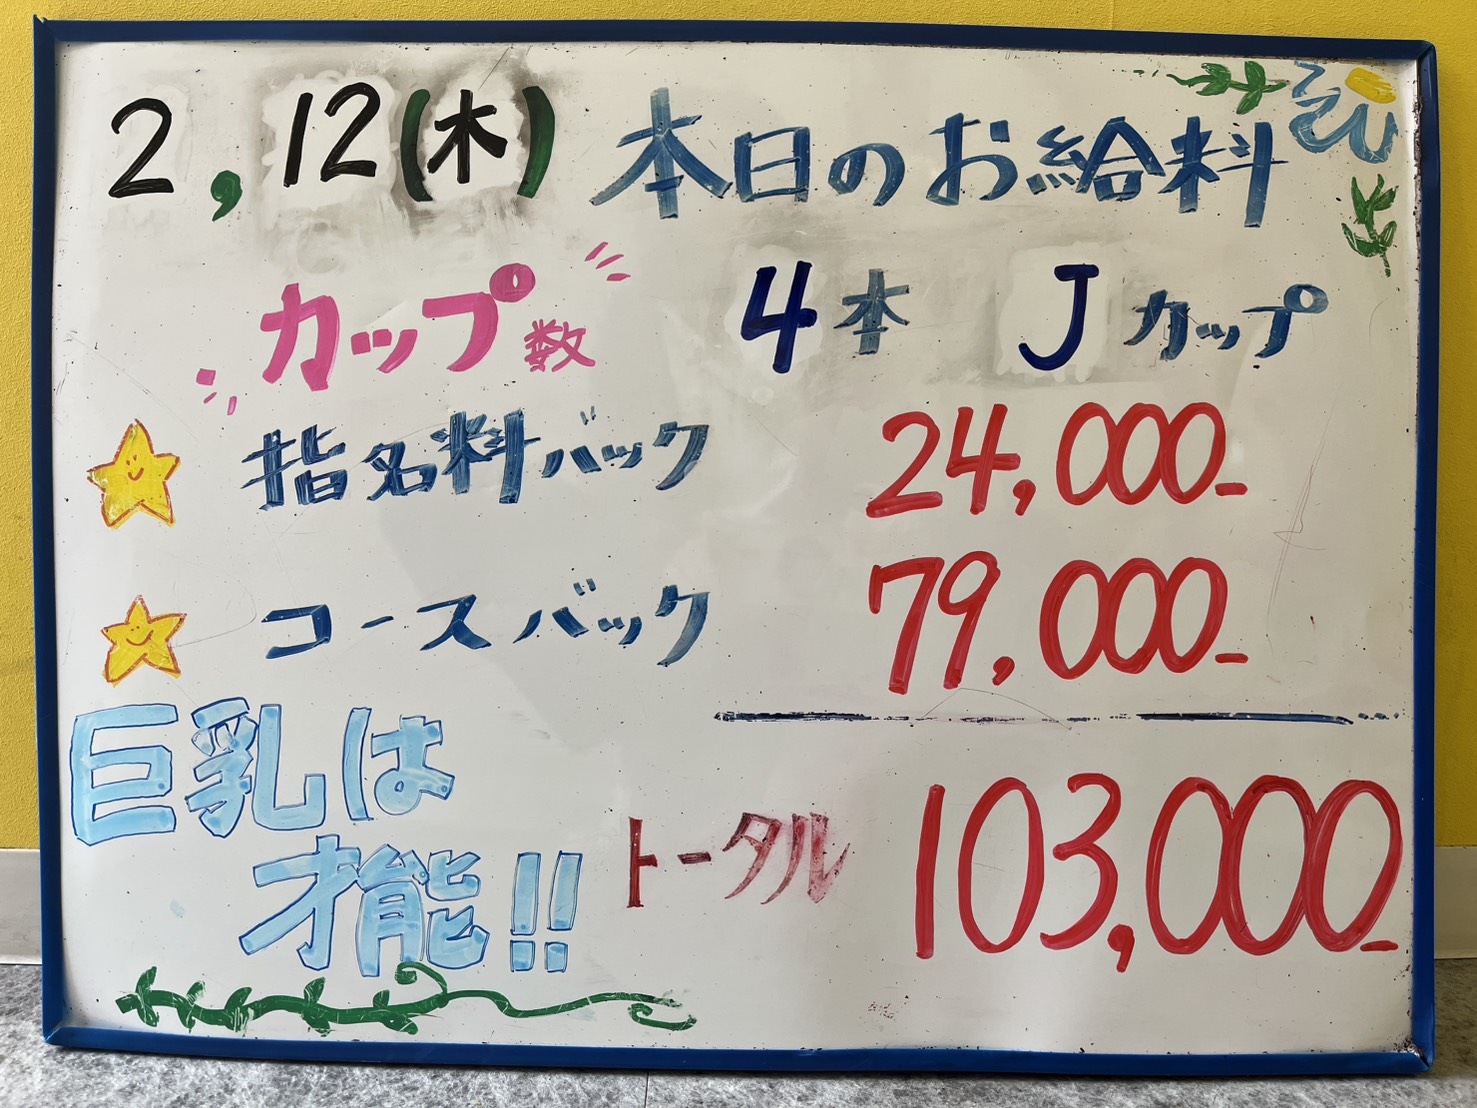 2,12(木) 本日のお給料
カップ数 4本 Jカップ
指名料バック 24,000-
コースバック 79,000-
巨乳は
才能!!
トータル 103,000-